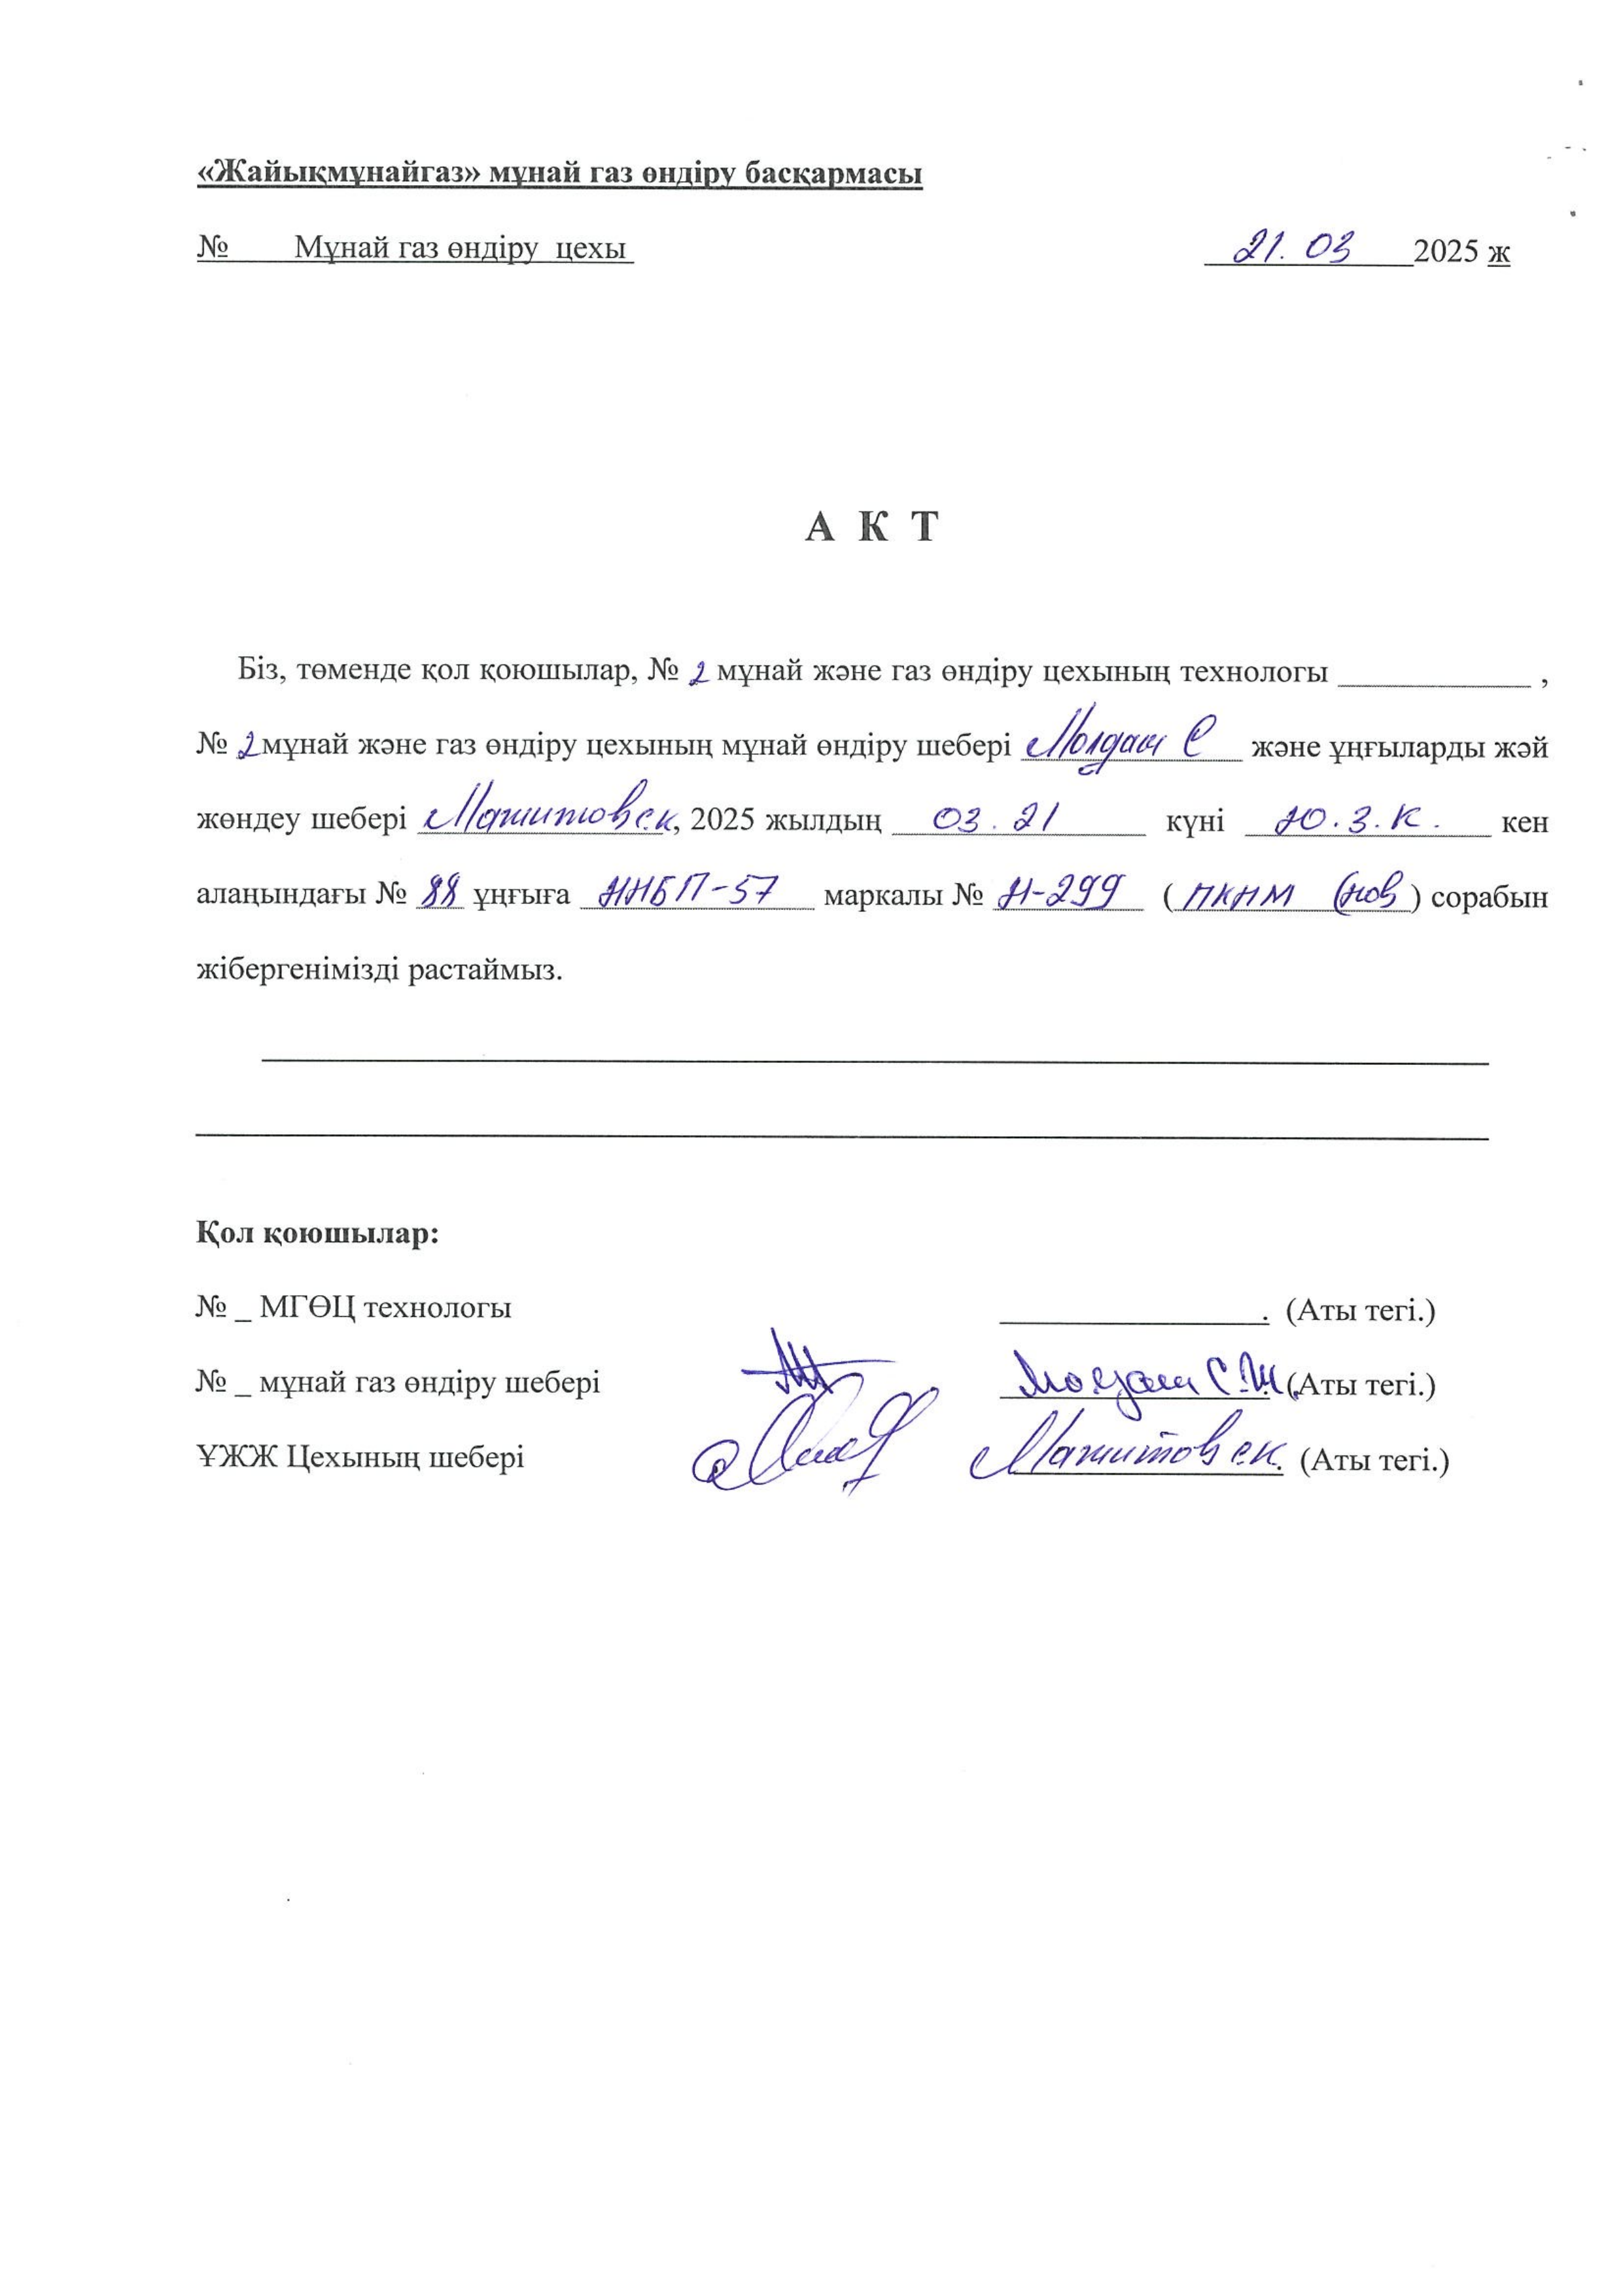 «Жайықмұнайгаз» мұнай газ өндіру басқармасы
№ Мұнай газ өндіру цехы 21. 03 2025 ж
А К Т
Біз, төменде қол қоюшылар, № 2 мұнай және газ өндіру цехының технологы ____________ ,
№ 2 мұнай және газ өндіру цехының мұнай өндіру шебері Молдаш С және ұңғыларды жәй
жөндеу шебері Машитов е.к, 2025 жылдың 03. 21 күні Ю.З.К. кен
алаңындағы № 88 ұңғыға ННБП-57 маркалы № Н-299 (ПКНМ (нов) сорабын
жібергенімізді растаймыз.
Қол қоюшылар:
№ _ МГӨЦ технологы ________________. (Аты тегі.)
№ _ мұнай газ өндіру шебері Молдаш С.Ж. (Аты тегі.)
ҰЖЖ Цехының шебері Машитов е.к. (Аты тегі.)